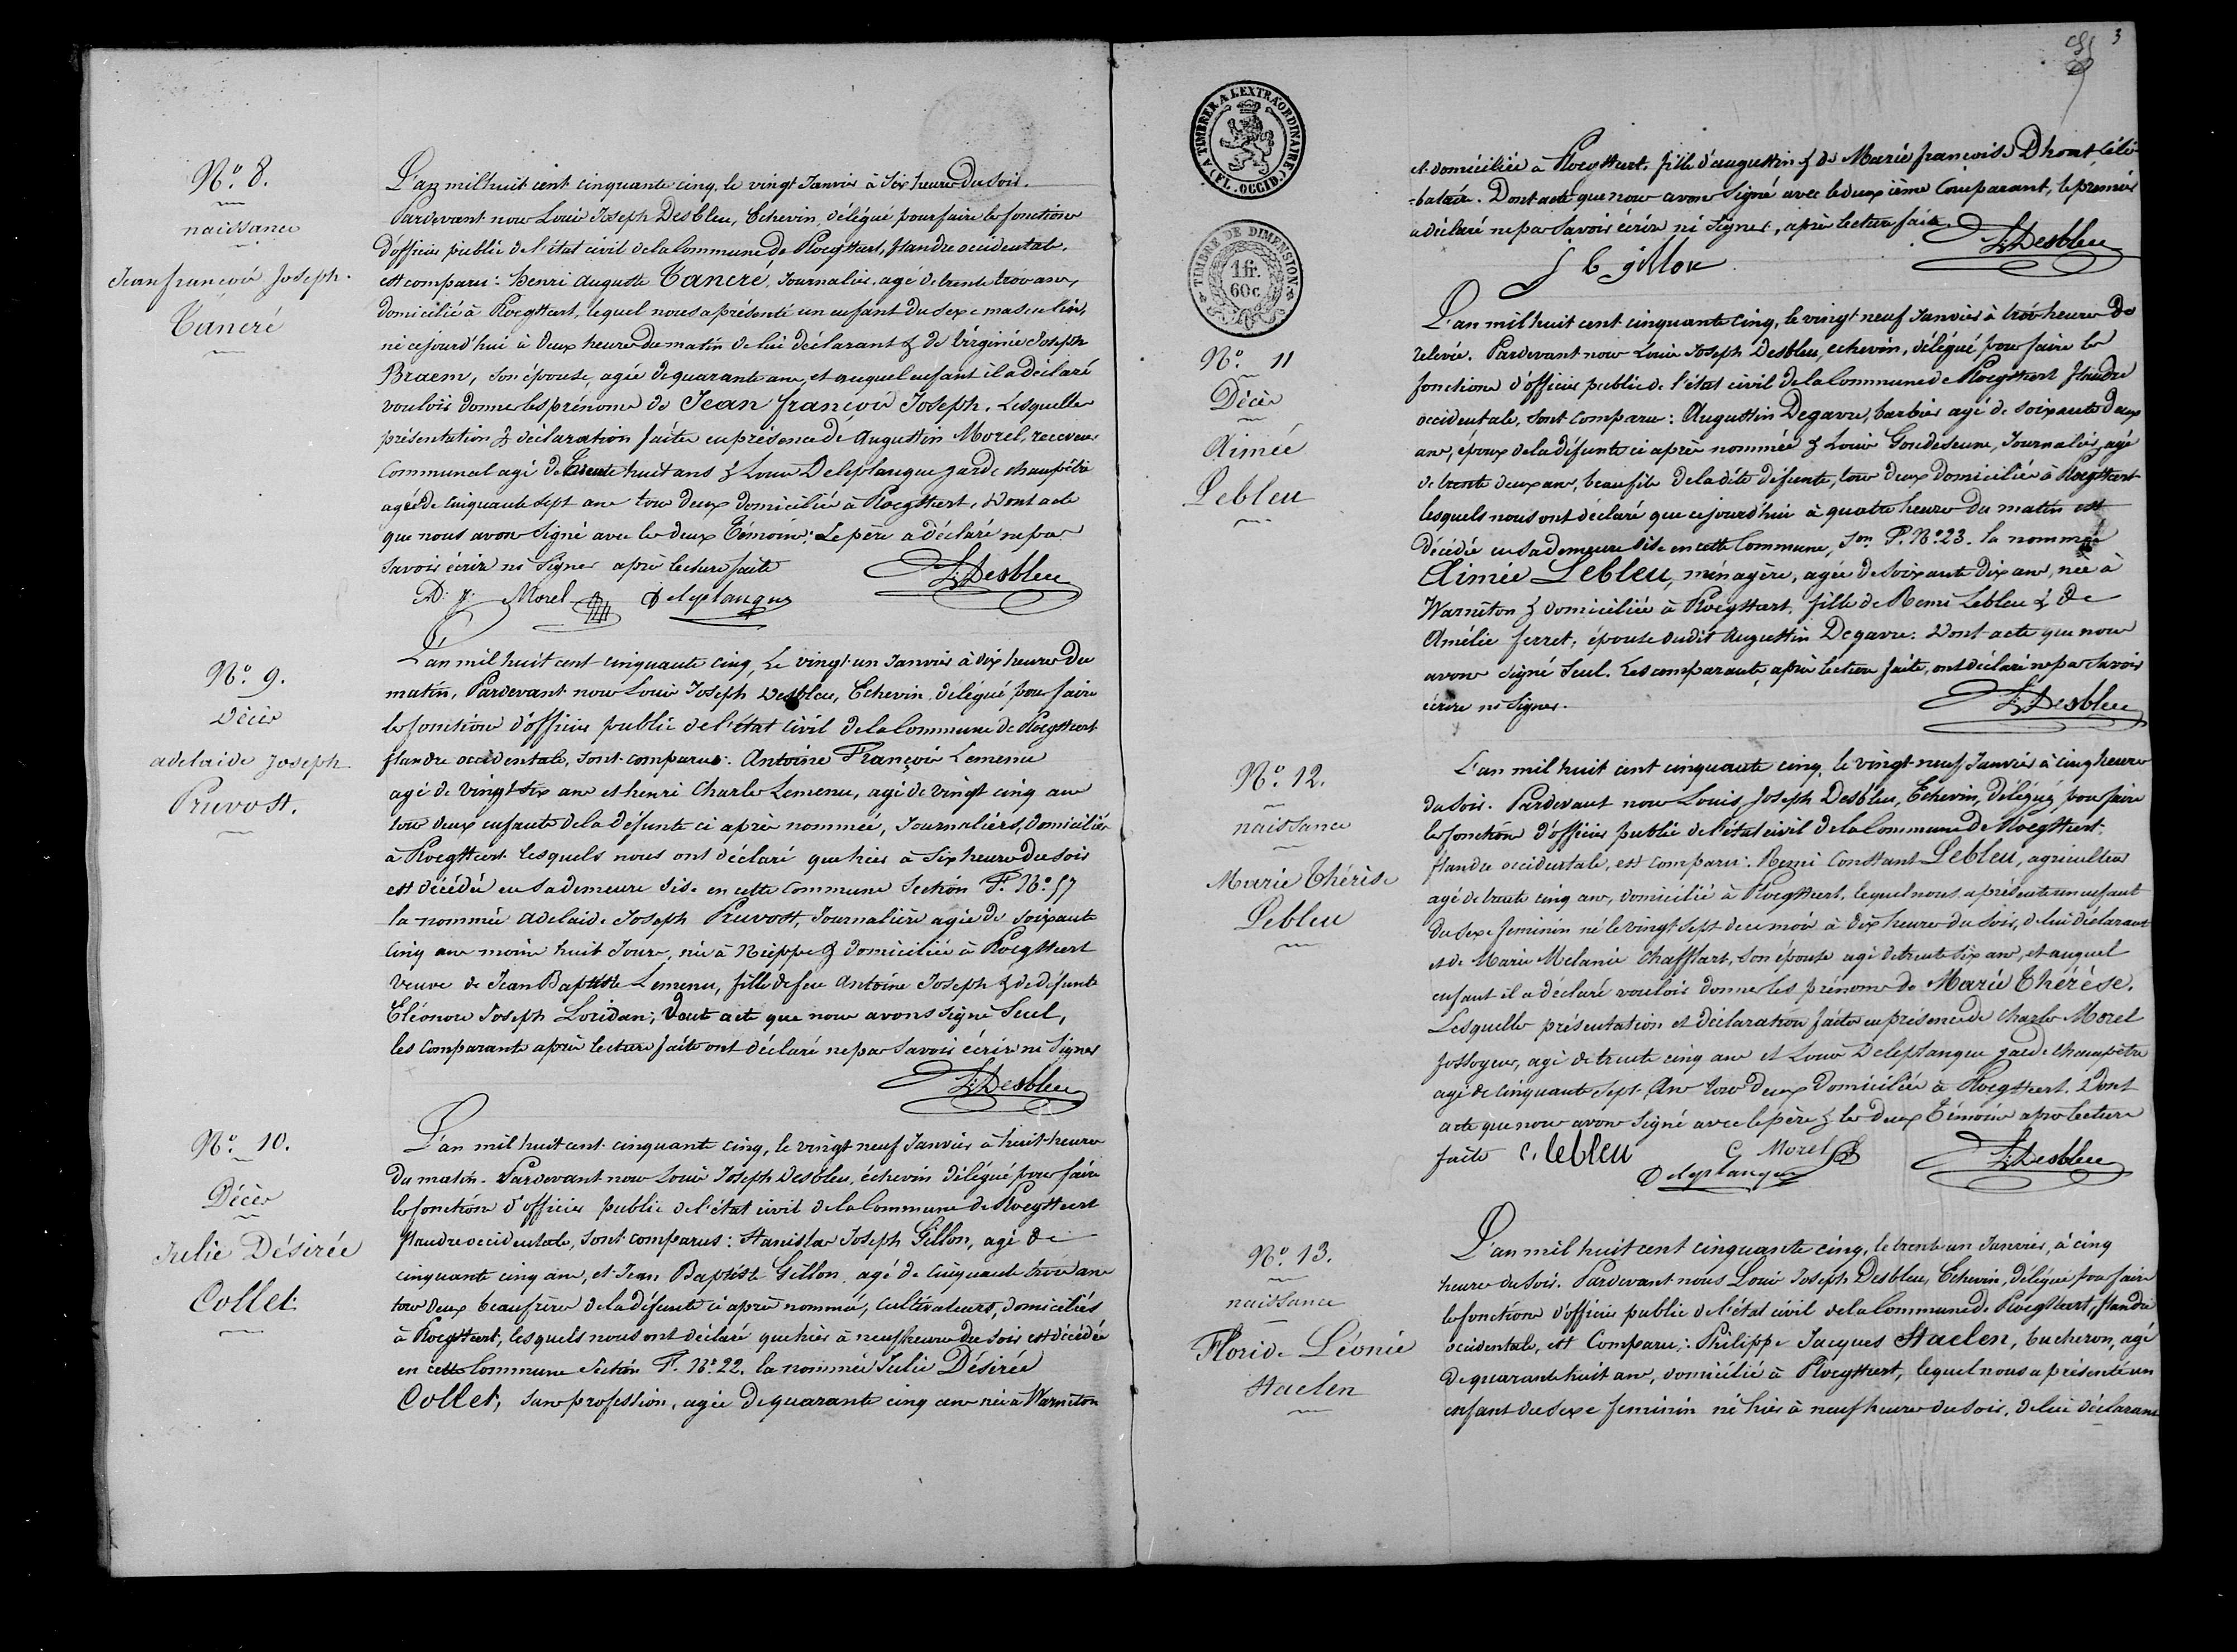 N.º 8.
naissance
Jean françois Joseph.
Tancré
L'an mil huit cent cinquante cinq, le vingt Janvier à Six heures du soir.
Pardevant nous Louis Joseph Desbleu, Echevin, délégué pour faire les fonctions
d'officier public de l'état civil de la Commune de Ploegsteert, flandre occidentale.
est comparu: henri auguste Tancré, Journalier, agé de trente trois ans,
domicilié à Ploegsteert, lequel nous a présenté un enfant du sexe masculin,
né cejourd'hui à deux heures du matin de lui déclarant & de Virginie Joseph
Braem, son épouse, agée de quarante ans, et auquel enfant il a déclaré
vouloir donner les prénoms de Jean françois Joseph. Lesquelles
présentation & déclaration faites en présence de Augustin Morel, receveur
Communal agé de Trente huit ans & Louis Deleplanque garde champêtre
agé de Cinquante sept ans tous deux domiciliés à Ploegsteert. Dont acte
que nous avons Signé avec les deux Témoins: Le père a déclaré ne pas
savoir écrire ni Signer après lecture faite
AD: J: Morel Delyplanque L: Desbleu
N.º 9.
Décès
adelaide Joseph
Pruvost.
L'an mil huit cent cinquante cinq, Le vingt un Janvier à dix heures du
matin, Pardevant nous Louis Joseph Desbleu, Echevin délégué pour faire
les fonctions d'officier public de l'état Civil de la Commune de Ploegsteert
flandre occidentale, sont comparus: Antoine François Lemenu
agé de vingt Six ans et henri Charles Lemenu, agé de vingt cinq ans
tous deux enfants de la défunte ci après nommée, Journaliers, domiciliés
à Ploegsteert lesquels nous ont déclaré que hier à Six heures du soir
est décédée en sa demeure sise en cette Commune Section F. N.º 57
la nommée adelaide Joseph Pruvost, Journalière agée de Soixante
cinq ans moins huit Jours, née à Nieppe & domiciliée à Ploegsteert
veuve de Jean Baptiste Lemenu, fille de feu Antoine Joseph & de défunte
Eléonore Joseph Loridan; Dont acte que nous avons Signé Seul,
les Comparants après lecture faite ont déclaré ne pas savoir écrire ni Signer
L: Desbleu
N.º 10.
Décès
Julie Désirée
Collet
L'an mil huit cent cinquante cinq, le vingt neuf Janvier à huit heures
du matin. Pardevant nous Louis Joseph Desbleu, échevin délégué pour faire
les fonctions d'officier public de l'état civil de la Commune de Ploegsteert
flandre occidentale, sont comparus: Stanislas Joseph Gillon, agé de
cinquante cinq ans, et Jean Baptiste Gillon, agé de Cinquante trois ans
tous deux beaufrères de la défunte ci après nommée, Cultivateurs, domiciliés
à Ploegsteert, lesquels nous ont déclaré que hier à neuf heures du soir est décédée
en cette Commune Section F. N.º 22, la nommée Julie Désirée
Collet, sans profession, agée de quarante cinq ans née à Warnêton
3
A TIMBRER A L'EXTRAORDINAIRE
(FL. OCCID.)
TIMBRE DE DIMENSION
1 fr.
60 c
et domiciliée à Ploegsteert, fille d'augustin & de Marie francoise Dhont, Céli-
-bataire. Dont acte que nous avons Signé avec le deuxième Comparant, le premier
a déclaré ne pas Savoir écrire ni Signer, après lecture faite.
J b gillon L: Desbleu
N.º 11
Décès
Aimée
Lebleu
L'an mil huit cent cinquante Cinq, le vingt neuf Janvier à trois heures de
relevée. Pardevant nous Louis Joseph Desbleu, echevin, délégué pour faire les
fonctions d'officier public de l'état civil de la Commune de Ploegsteert flandre
occidentale, sont comparus: Augustin Degavre, barbier agé de soixante deux
ans, époux de la défunte ci après nommée & Louis Goudeseune, Journalier, agé
de trente deux ans, beau fils de la dite défunte, tous deux domiciliés à Ploegsteert
lesquels nous ont déclaré que cejourd'hui à quatre heures du matin est
décédée en sa demeure sise en cette Commune, Son F. N.º 23. la nommée
Aimée Lebleu, ménagère, agée de Soixante dix ans, née à
Warnêton & domiciliée à Ploegsteert, fille de Remi Lebleu & de
Amélie ferret, épouse dudit Augustin Degavre. Dont acte que nous
avons signé Seul. Les comparants après lecture faite, ont déclaré ne pas savoir
écrire ni Signer.
L: Desbleu
N.º 12.
naissance
Marie Thérèse
Lebleu
L'an mil huit cent cinquante cinq, le vingt neuf Janvier à cinq heures
du soir. Pardevant nous Louis, Joseph Desbleu, Echevin, délégué pour faire
les fonctions d'officier public de l'état civil de la Commune de Ploegsteert.
flandre occidentale, est comparu: Remi Constant Lebleu, agriculteur
agé de trente cinq ans, domicilié à Ploegsteert, lequel nous a présenté un enfant
du sexe féminin né le vingt sept de ce mois à dix heures du soir, de lui déclarant
et de Marie Melanie Chaffart, son épouse agé de trente six ans, et auquel
enfant il a déclaré vouloir donner les prénoms de Marie Thérèse.
Lesquelles présentation et déclaration faites en présence de Charles Morel
fossoyeur, agé de trente cinq ans et Louis Deleplanque garde champêtre
agé de cinquante Sept Ans tous deux domiciliés à Ploegsteert. Dont
acte que nous avons signé avec le père & les deux Témoins après lecture
faite C. lebleu C Morel L: Desbleu
Delyplanque
N.º 13.
naissance
Floride Léonie
Staelen
L'an mil huit cent cinquante cinq, le trente un Janvier, à cinq
heures du soir. Pardevant nous Louis Joseph Desbleu, Echevin, délégué pour faire
les fonctions d'officier public de l'état civil de la Commune de Ploegsteert, flandre
occidentale, est Comparu: Philippe Jacques Staelen, bucheron, agé
de quarante huit ans, domicilié à Ploegsteert, lequel nous a présenté un
enfant du sexe féminin né hier à neuf heures du soir, de lui déclarant